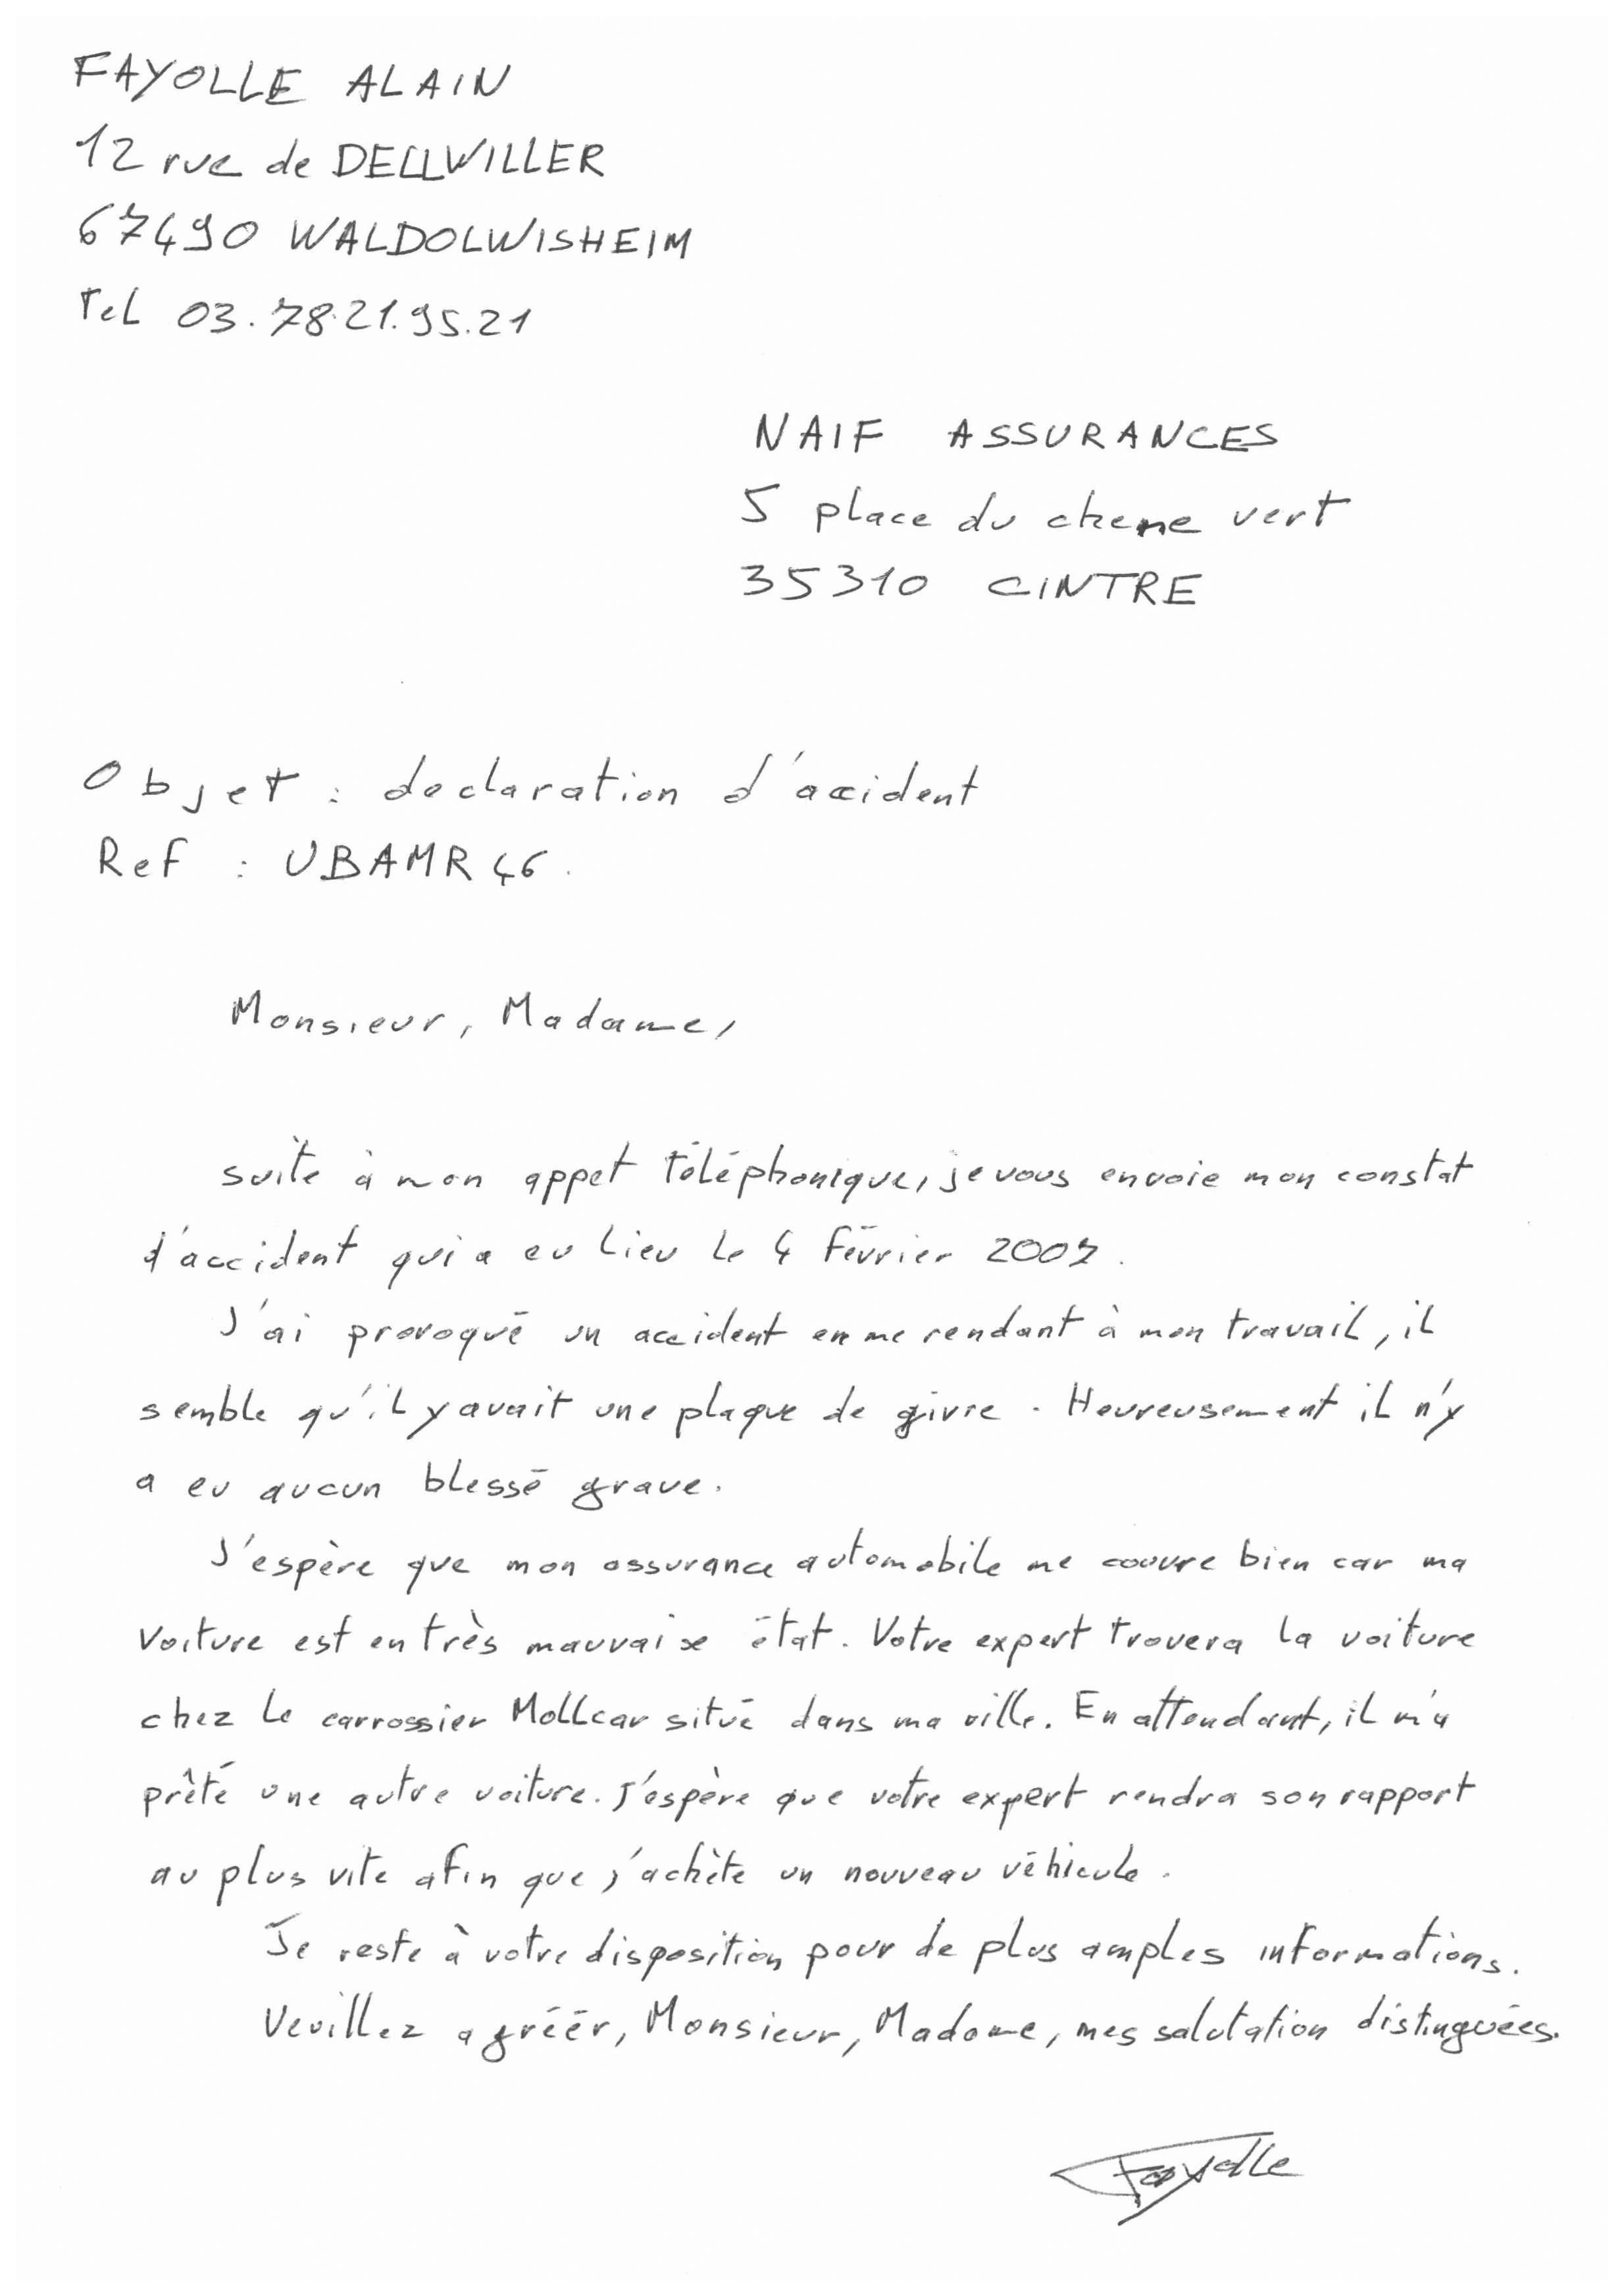 FAYOLLE ALAIN
12 rue de DELLWILLER
67490 WALDOLWISHEIM
Tel 03.78.21.95.21
NAIF ASSURANCES
5 place du chene vert
35310 CINTRE
Objet : declaration d'accident
Ref : UBAMR46.
Monsieur, Madame,
suite à mon appel téléphonique, je vous envoie mon constat
d'accident qui a eu lieu le 4 février 2007.
J'ai provoqué un accident en me rendant à mon travail, il
semble qu'il y avait une plaque de givre. Heureusement il n'y
a eu aucun blessé grave.
J'espère que mon assurance automobile me couvre bien car ma
voiture est en très mauvaise état. Votre expert trouvera la voiture
chez le carrossier Mollcar situé dans ma ville. En attendant, il m'a
prêté une autre voiture. J'espère que votre expert rendra son rapport
au plus vite afin que j'achète un nouveau véhicule.
Je reste à votre disposition pour de plus amples informations.
Veuillez agréér, Monsieur, Madame, mes salutation distinguées.
Fayolle